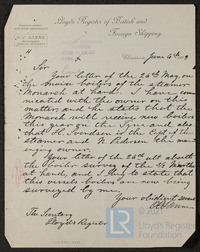 Lloyd's Register of British and
Foreign Shipping
June 4th
Sir
Your letter of the 25th May, on
the main boilers of the steamer
Monarch at hand. I have com
municated with the owner on this
matter and he states that the
Monarch will receive new boilers
this year on the Tyne and also
that H. Svendsen is the Capt of the
steamer and N. the man
aging owner.
Your letter of the 25th ult as to
the Boiler survey of the
at hand, and I beg to state that
this vessels boilers are now being
surveyed by me,
Your obedient servant
The Secretary
Lloyd's Register
Lloyd's Register
Foundation